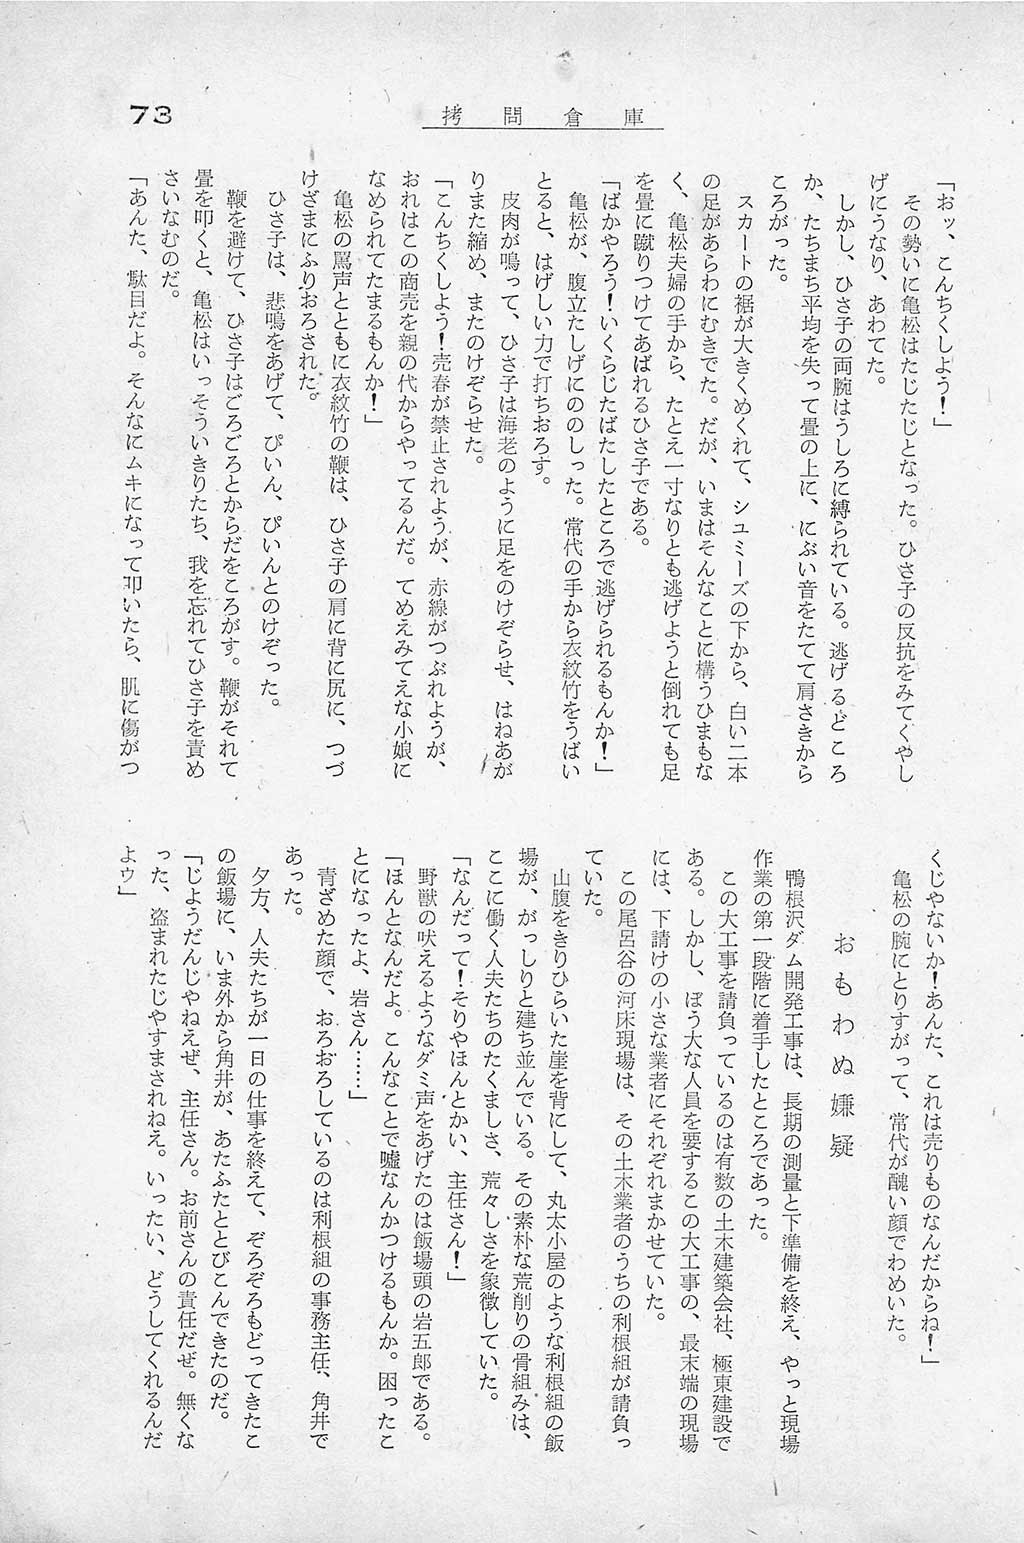 73
拷問倉庫
「おッ、こんちくしよう！」
その勢いに亀松はたじたじとなった。ひさ子の反抗をみてくやし
げにうなり、あわてた。
しかし、ひさ子の両腕はうしろに縛られている。逃げるどころ
か、たちまち平均を失って畳の上に、にぶい音をたてて肩さきから
ころがった。
スカートの裾が大きくめくれて、シュミーズの下から、白い二本
の足があらわにむきでた。だが、いまはそんなことに構うひまもな
く、亀松夫婦の手から、たとえ一寸なりとも逃げようと倒れても足
を畳に蹴りつけてあばれるひさ子である。
「ばかやろう！いくらじたばたしたところで逃げられるもんか！」
亀松が、腹立たしげにののしった。常代の手から衣紋竹をうばい
とると、はげしい力で打ちおろす。
皮肉が鳴って、ひさ子は海老のように足をのけぞらせ、はねあが
りまた縮め、またのけぞらせた。
「こんちくしよう！売春が禁止されようが、赤線がつぶれようが、
おれはこの商売を親の代からやってるんだ。てめえみてえな小娘に
なめられてたまるもんか！」
亀松の罵声とともに衣紋竹の鞭は、ひさ子の肩に背に尻に、つづ
けざまにふりおろされた。
ひさ子は、悲鳴をあげて、ぴいん、ぴいんとのけぞった。
鞭を避けて、ひさ子はごろごろとからだをころがす。鞭がそれて
畳を叩くと、亀松はいっそういきりたち、我を忘れてひさ子を責め
さいなむのだ。
「あんた、駄目だよ。そんなにムキになって叩いたら、肌に傷がつ
くじやないか！あんた、これは売りものなんだからね！」
亀松の腕にとりすがって、常代が醜い顔でわめいた。
おもわぬ嫌疑
鴨根沢ダム開発工事は、長期の測量と下準備を終え、やっと現場
作業の第一段階に着手したところであった。
この大工事を請負っているのは有数の土木建築会社、極東建設で
ある。しかし、ぼう大な人員を要するこの大工事の、最末端の現場
には、下請けの小さな業者にそれぞれまかせていた。
この尾呂谷の河床現場は、その土木業者のうちの利根組が請負っ
ていた。
山腹をきりひらいた崖を背にして、丸太小屋のような利根組の飯
場が、がっしりと建ち並んでいる。その素朴な荒削りの骨組みは、
ここに働く人夫たちのたくましさ、荒々しさを象徴していた。
「なんだって！そりやほんとかい、主任さん！」
野獣の吠えるようなダミ声をあげたのは飯場頭の岩五郎である。
「ほんとなんだよ。こんなことで嘘なんかつけるもんか。困ったこ
とになったよ、岩さん……」
青ざめた顔で、おろおろしているのは利根組の事務主任、角井で
あった。
夕方、人夫たちが一日の仕事を終えて、ぞろぞろもどってきたこ
の飯場に、いま外から角井が、あたふたととびこんできたのだ。
「じようだんじやねえぜ、主任さん。お前さんの責任だぜ。無くな
った、盗まれたじやすまされねえ。いったい、どうしてくれるんだ
よゥ」